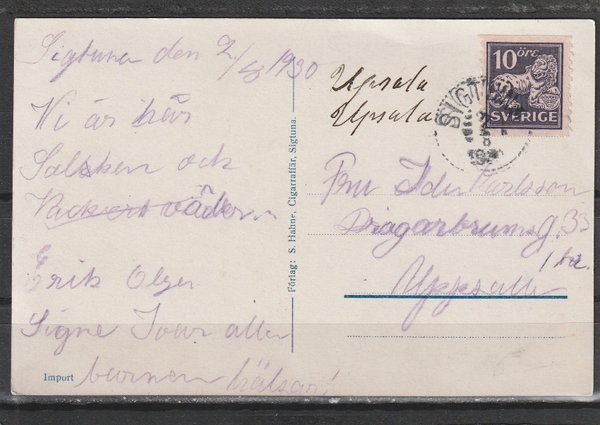 Sigtuna den 2/8 1930
Vi är här
Solsken och
Vackert väder
Erik Olger
Signe Tour alla
barnen hälsar!
Import
Förlag: S. Hahne, Cigarraffär, Sigtuna.
Upsala
Upsala
SIGTUNA
10 ÖRE
SVERIGE
Fru Ida Karlsson
Dragarbrunsg. 33
1 tr.
Uppsala